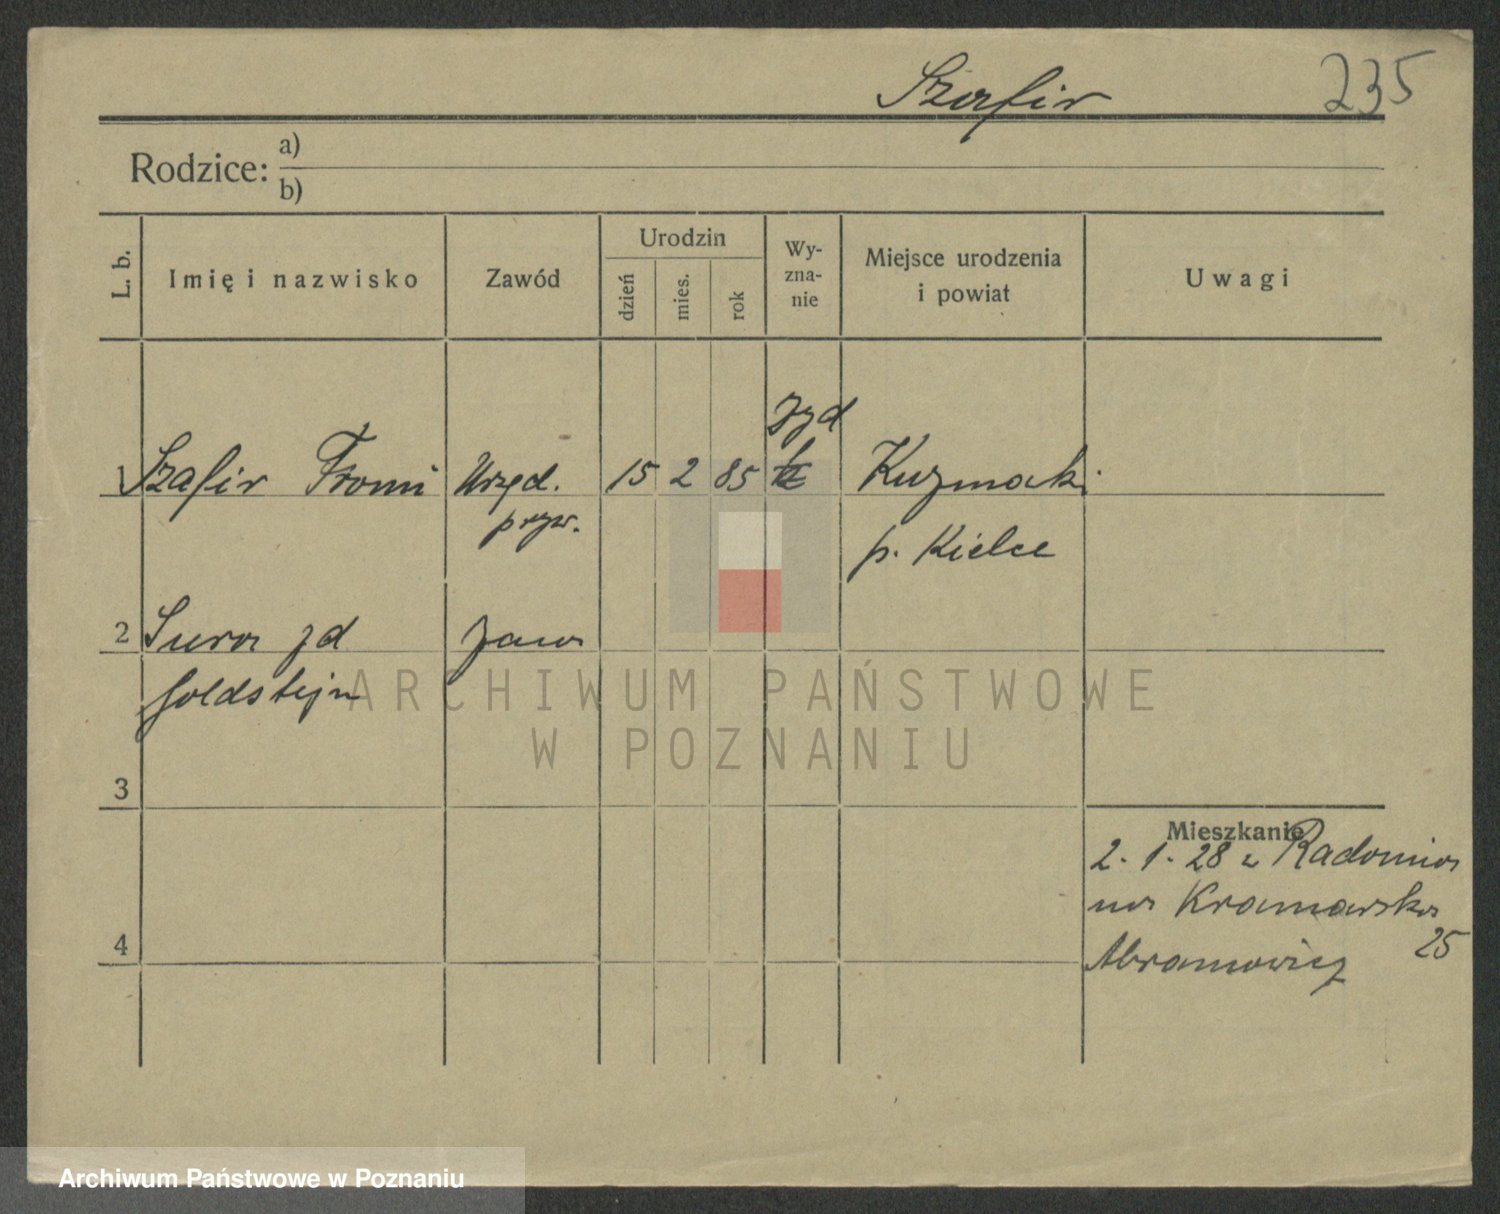 Szafir
235
Rodzice: a)
b)
L. b.
Imię i nazwisko
Zawód
Urodzin
dzień
mies.
rok
Wy-
zna-
nie
Miejsce urodzenia
i powiat
Uwagi
żyd
1 Szafir Urzęd. 15 2 85 Kuzmaki
pryw.
p. Kielce
2 Sura żd żona
Goldstejn
3
Mieszkanie
2. 1. 28 z Radomia
na Kramarska
25
4
Abramowicz
ARCHIWUM PAŃSTWOWE
W POZNANIU
Archiwum Państwowe w Poznaniu